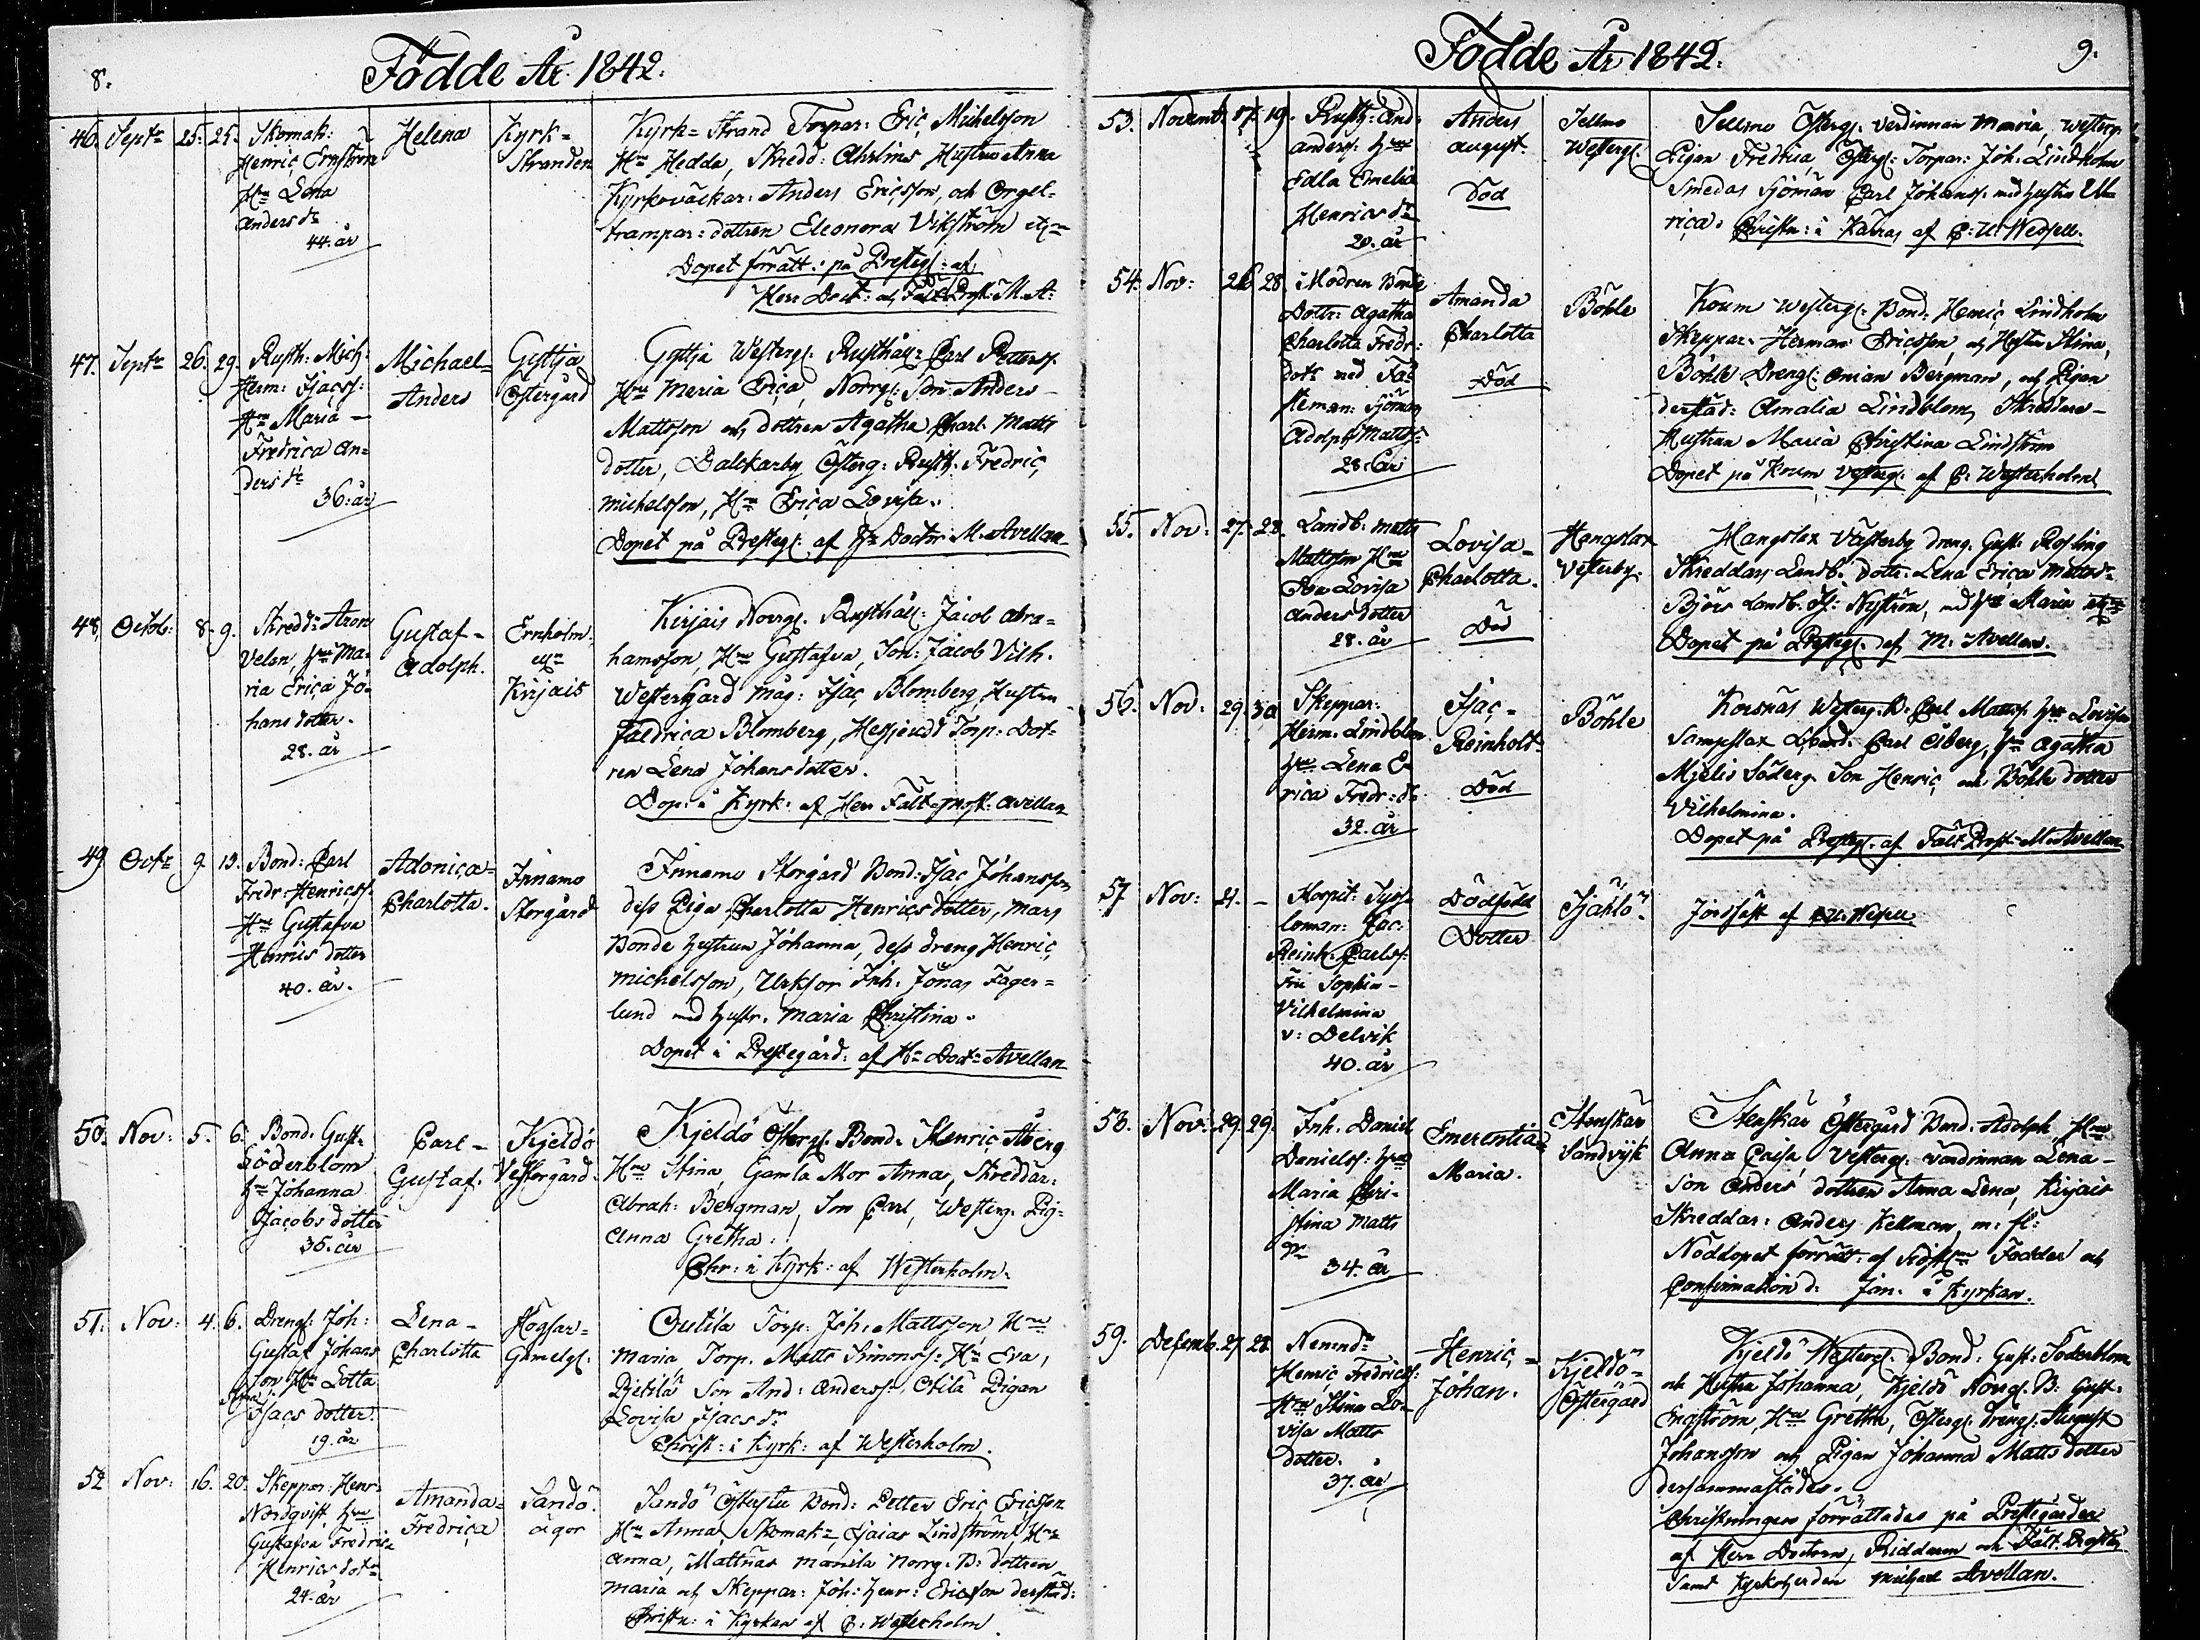 8.
Födde År 1842.
46. Septr 25. 25.
Skomak:
Henric Ernström
Hu Lena
Anders dr
44. år
Helena
Kyrk=
Stranden
Kyrk= Strand Torpar: Eric Michelsson
Hu Hedda, Skredd: Ahrlins Hustru Anna
Kyrkoväckar: Anders Ericsson, och Orgel-
trampar: dottren Eleonora Vikström
Dopet förrätt: på Prestegl: af
Herr Doct: och Fält Prost: M. A:
47. Septr 26. 29.
Rusth: Mich:
Herm: Isacss:
Hu Maria -
Fredrica An=
ders dr
36. år
Michael=
Anders
Gyttja
Östergård
Gyttja Westergl: Rusthåll: Carl Petterss.
Hu Maria Erica, Norrgl: Son Anders -
Mattsson och dottren Agatha Charl. Matts
dotter, Dalskarby Österg: Rusth. Fredric
Michelsson, Hu Erica Lovisa.
Dopet på Prestegl: af Hr Doctor M. Avellan
48. Octob: 8. 9.
Skredd: Aron
Velen, Hu Ma=
ria Erica Jo=
hans dotter.
28. år
Gustaf -
Adolph.
Ernholm
Kirjais
Kirjais Norrgl. Rusthåll: Jacob Abra=
hamsson, Hu Gustafva, Son: Jacob Vilh.
Westergård Måg: Isac Blomberg, Hustru
Fredrica Blomberg, Torp: Dot=
ren Lena Johansdotter.
Dop: i Kyrk: af Herr Fält-prost: Avellan
49. Octr 9. 13.
Bond: Carl
Fredr. Henricss.
Hu Gustafva
Henrics dotter
40. år.
Adonica=
Charlotta.
Innamo
Storgård
Innamo Storgård Bond: Isac Johansson
dess Piga Charlotta Henricsdotter, Mars
Bonde Hustrun Johanna, dess dreng Henric
Michelsson, Inh. Jonas Fager=
lund med Hustr. Maria Christina.
Dopet i Prestegård: af Hr Doct: Avellan
50. Nov: 5. 6.
Bond: Gust.
Söderblom
Hu Johanna
Jacobs dotter
35. år
Carl -
Gustaf.
Kjeldö
Vestergård.
Kjeldö Östergl: Bond: Henric Åberg
Hu Stina, Gamla Mor Anna, Skreddar:
Abrah: Bergman, Son Carl, Westerg. Pig=
Anna Gretha.
Chr: i Kyrk: af Westerholm.
51. Nov: 4. 6.
Drengl: Joh:
Gustaf Johans
son Hu Lotta
Stina
Isacs dotter.
19. år
Lena -
Charlotta
Högsar=
Gamelgl.
Outila Torp: Joh: Mattsson, Hu
Maria, Torp. Matts Simonss: Hu Eva,
Pjetilä Son And: Anderss: Otilä Pigan
Lovisa Isacs dr
Christ: i Kyrk: af Westerholm.
52. Nov: 16. 20.
Skeppar: Henr:
Nordqvist Hu
Gustafva Fredrica
Henrics dot=
24. år
Amanda=
Fredrica
Sandö
ägor
Sandö Bond: Petter Eric Ericsson
Hu Anna, Skomak= Esaias Lindström, Hu
Anna, Mattnäs Norrg: B: dottren
Maria och Skeppar: Joh: Henr: Ericsson derstäd:
Christn: i Kyrkan af C: Westerholm.
Födde År 1842.
9.
53. Novemb. 17. 19.
Rusth: And:
Anderss: Hu
Edla Emelia
Henrics dr
20. år
Anders
August.
Död
Sellmo
Westergl.
Sellmo Östergl: Verdinnan Maria, Westerg:
Pigan Fredrica, Östergl: Torpar: Joh. Lindholm
Smedas Sjöman Carl Johanss. med Hustru Ul=
rica. Christn: i Kärras af C: U: Wedsell.
54. Nov: 26 28.
Modren Bonde
Dottr: Agatha
Charlotta Fredr:
dotr med Fäs
teman: Sjöman
Adolph Matts:
28. år
Amanda
Charlotta
Död
Böhle
Koum Westergl: Bond: Henric Lindholm
Skeppar: Herman Ericsson, och Hustru Stina,
Böhle Drengl: Bergman, och Pigan
derstäd: Amalia Lindblom, Skreddare-
Hustrun Maria Christina Lindström
Dopet på Koum Vesterg. af C: Westerholm
55. Nov: 27. 28.
Landb: Matts
Mattsson Hu
Eva Lovisa
Anders dotter
28. år
Lovisa=
Charlotta.
Död
Hangslax
Vesterby.
Hangslax Västerby dreng. Gust: Rosling
Skreddars Landb. dottr. Lena Erica Matts dr
Björs Landb. Nyström, med Hu Maria
Dopet på Prestegl. af M: Avellan.
56. Nov: 29. 30
Skeppar:
Herm. Lindblom
Hu Lena E=
rica Fredr: dr
32. år
Isac=
Reinholt
Död
Böhle
Korsnäs Westerg. B: Carl Mattss. Hu Lovisa
Sampslax Carl Öberg, Hu Agatha
Mjelis Söderg. Son Henric och Böhle dotter
Vilhelmina.
Dopet på Prestegl. af Fält Prost: M: Avellan
57 Nov: 21. -
Hospit: Syss=
loman: Jac:
Reinh: Carlss.
Fru Sophia -
Vilhelmina
v: Delvik
40. år
Dödfödd
Dotter
Själö
Jordfäst af C: U: Wedsell
58. Nov: 29. 29.
Inh. Daniel
Danielss: Hu
Maria Chri=
stina Matts
dr
34. år
Emerentia=
Maria.
Stenskär
Sandvijk
Stenskär Östergård Bond. Adolph, Hu
Anna Caisa, Vestergl: värdinnan Lena -
Son Anders dottren Anna Lena, Kirjais
Skreddar: Anders Kellman, m: fl:
Nöddopet förrätt: af Fodder och
Confirmation d: Jan: i Kyrkan.
59. Desemb. 27. 28.
Nemnd:
Henric Fredricss.
Hu Stina Lo=
visa Matts
dotter.
37. år
Henric=
Johan.
Kjeldö=
Östergård
Kjeldö Westergl: Bond: Gust: Söderblom
och Hustru Johanna, Kjeldö Norrgl. B: Gust:
Engström, Hu Gretha, Östergl. Drengl. August
Johansson och Pigan Johanna Matts dotter
dersammastädes.
Christningen förrättades på Prestegården
af Herr Doctorn, Riddaren och Fält Prosten
samt Kyrkoherden Michael Avellan.